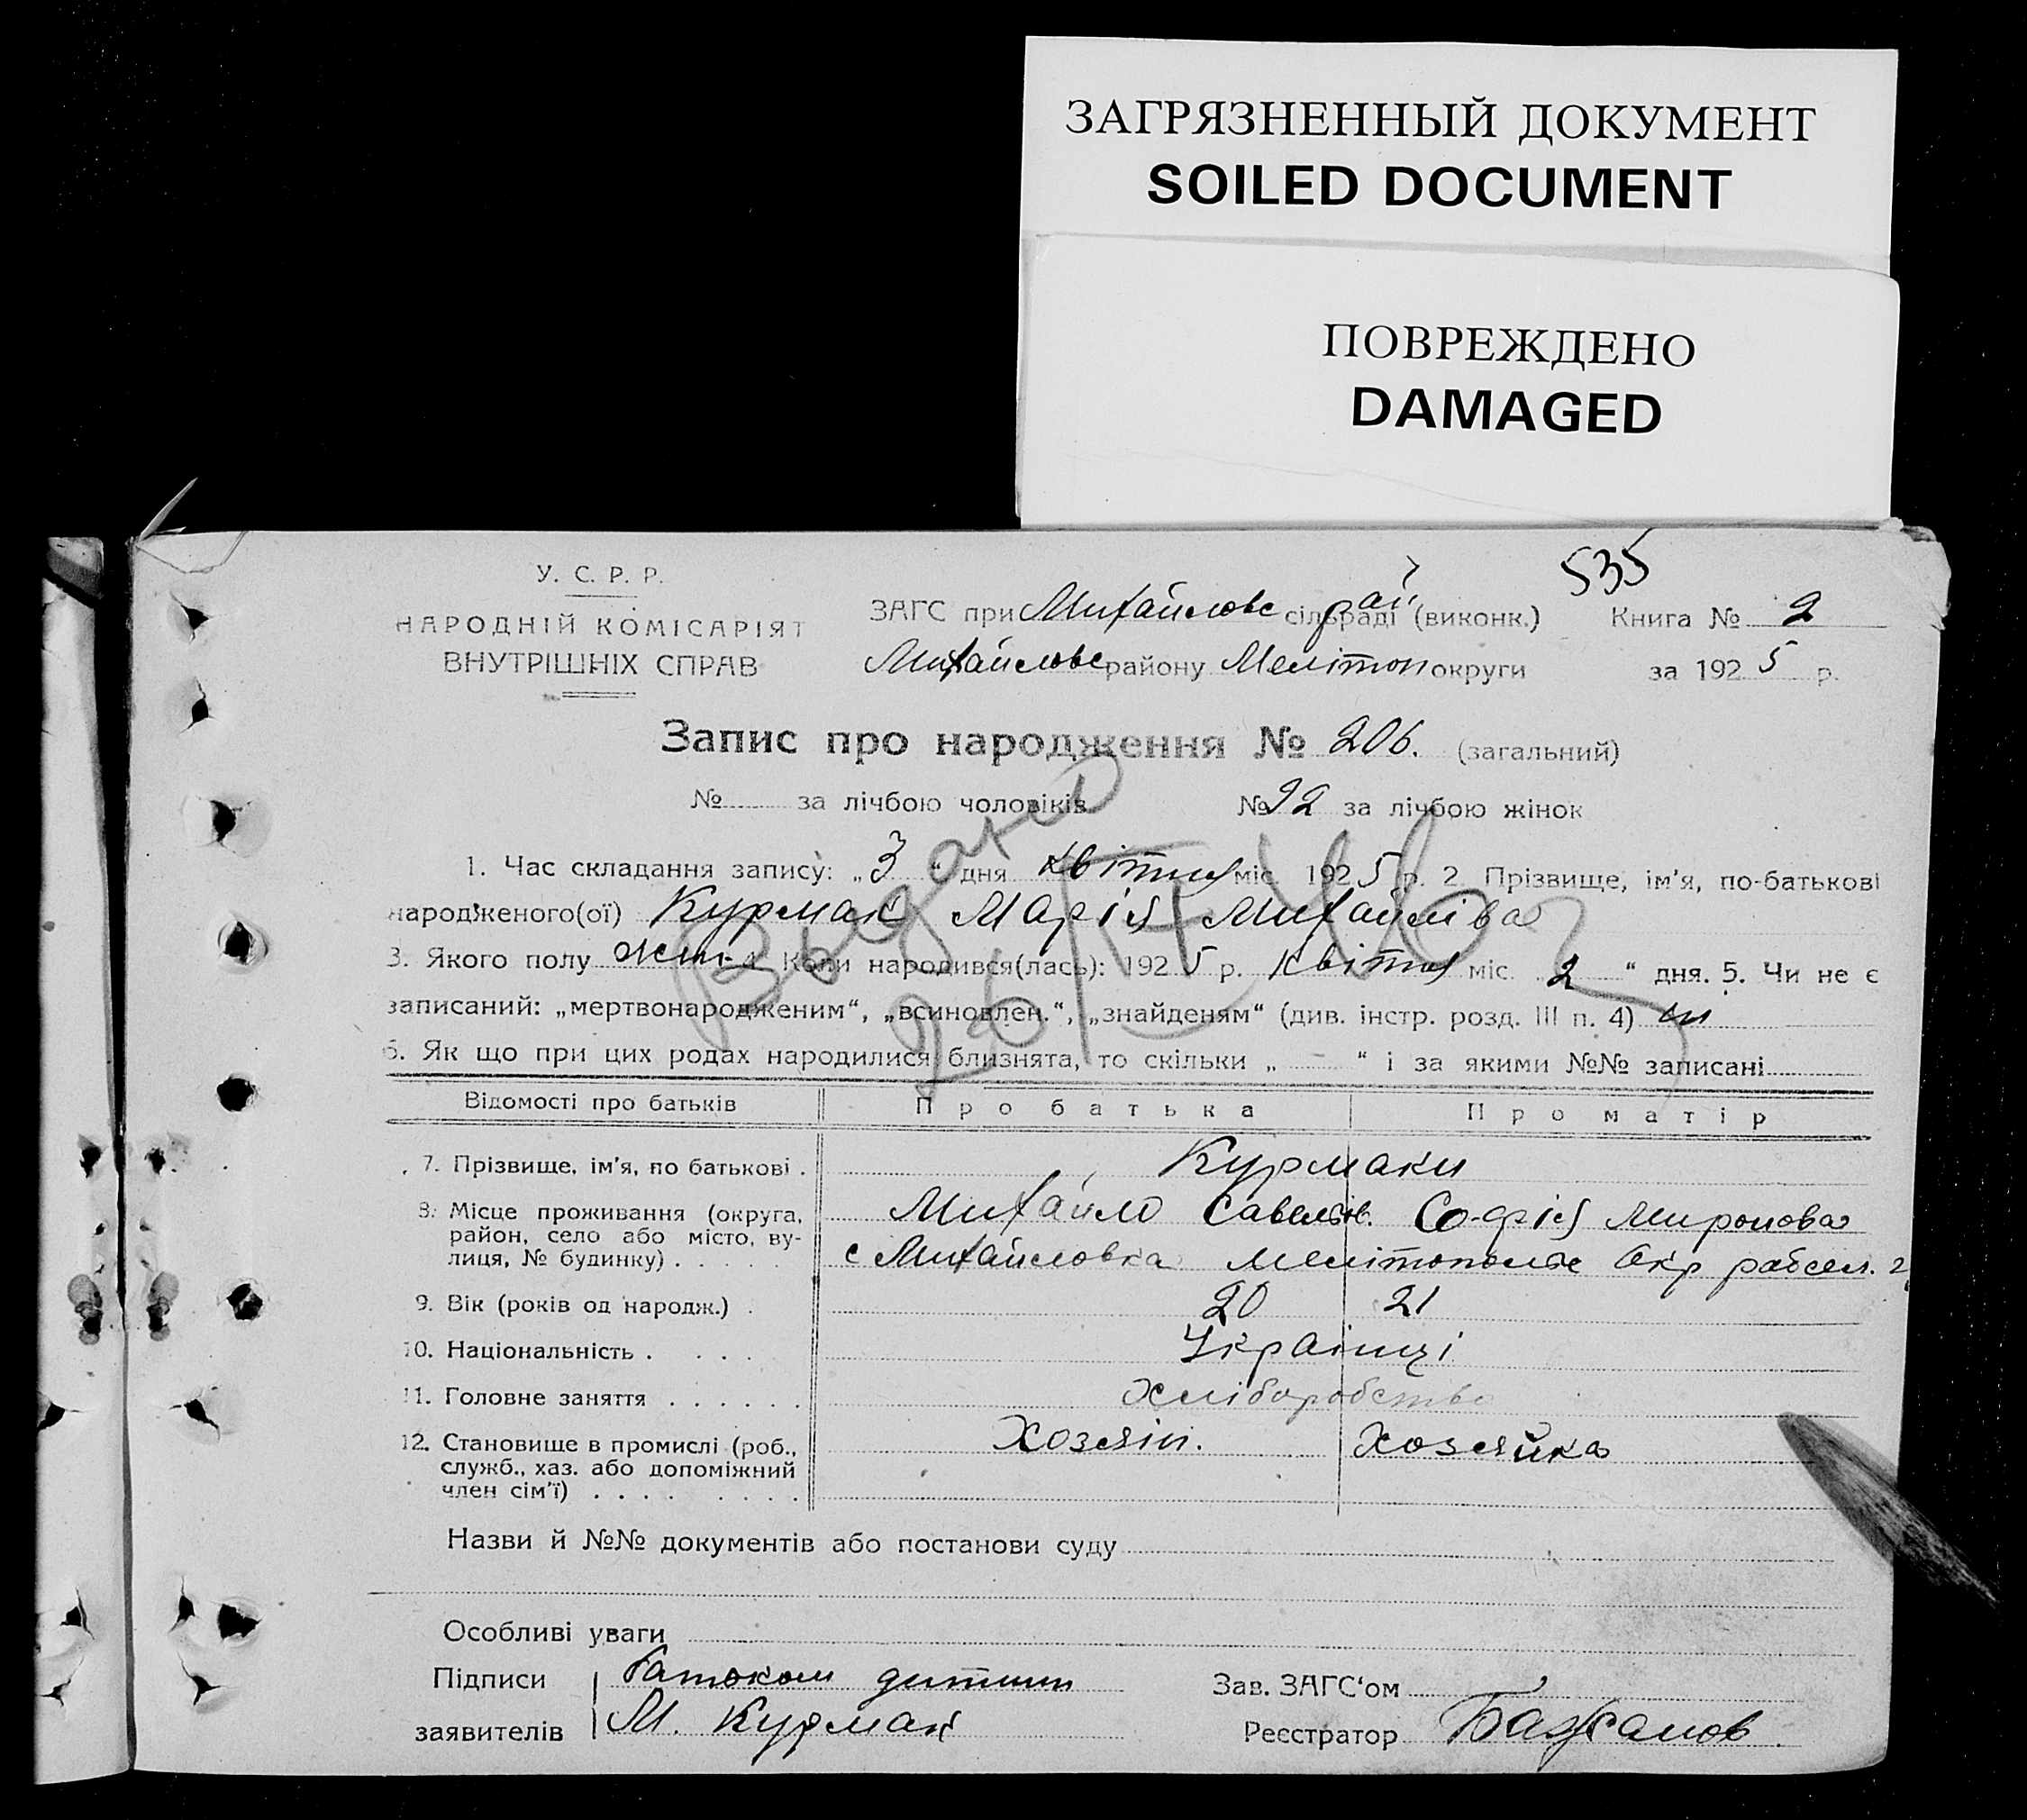 ЗАГРЯЗНЕННЫЙ ДОКУМЕНТ
SOILED DOCUMENT
ПОВРЕЖДЕНО
DAMAGED
535
У. С. Р. Р.
НАРОДНІЙ КОМІСАРІЯТ
ВНУТРІШНІХ СПРАВ
ЗАГС при Михайловс сільраді рай (виконк.) Книга № 2
Михайловс району Мелітоп округи за 1925 р.
Запис про народження № 206. (загальний)
№ за лічбою чоловіків № 92 за лічбою жінок
1. Час складання запису: „3“ дня квітня міс. 1925 р. 2. Прізвище, ім’я, по-батькові
народженого(ої) Курмак Марія Михайлівa
3. Якого полу жін. 4. Коли народився(лась): 1925 р. Квітня міс. 2 “ дня. 5. Чи не є
записаний: „мертвонародженим“, „всиновлен.“, „знайденям“ (див. інстр. розд. III п. 4) ні
6. Як що при цих родах народилися близнята, то скільки „ — “ і за якими №№ записані
Відомості про батьків Про батька Про матір
7. Прізвище, ім’я, по батькові . Курмаки
8. Місце проживання (округа, район, село або місто, ву-лиця, № будинку) . . . . . Михайло Савельїв. Софія Миронова
с Михайловка Мелітопольс Окр
9. Вік (років од народж.) . 20 21
10. Національність . . . . Українці
11. Головне заняття . . . . . . Хліборобство
12. Становище в промислі (роб., Хозяїн. Хозяйка
служб., хаз. або допоміжний
член сім’ї) . . . . . . . .
Назви й №№ документів або постанови суду
Особливі уваги
Підписи Батьком дитини Зав. ЗАГС‘ом
заявителів М. Курмак Реєстратор Бажанов